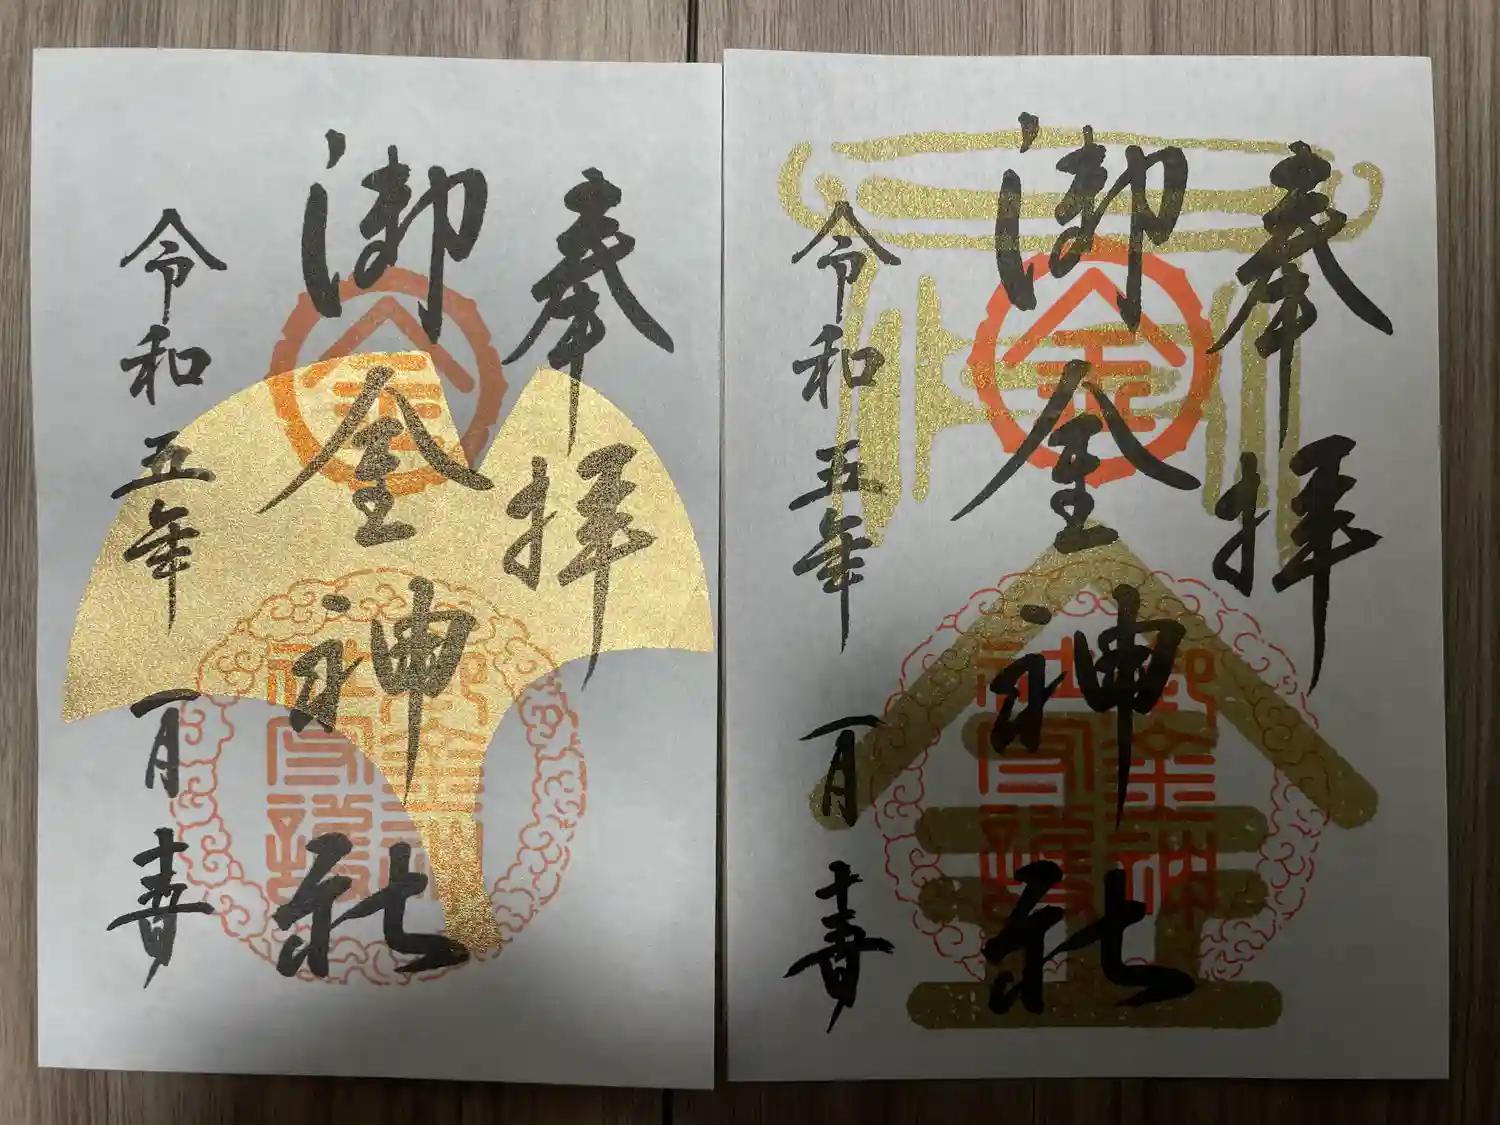 奉拝
金
御金神社
御金神
社守護
令和五年一月十
奉拝
金
御金神社
御金神
社守護
令和五年一月十